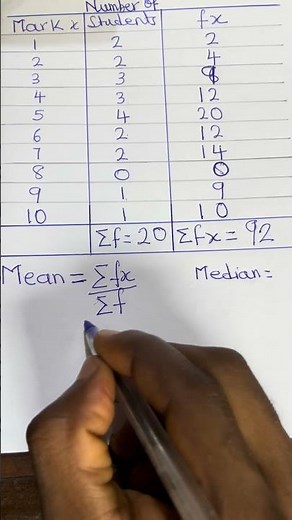 Number of
Mark x Students fx
1 2 2
2 2 4
3 3 9
4 3 12
5 4 20
6 2 12
7 2 14
8 0 0
9 1 9
10 1 10
Σf=20 Σfx=92
Mean = Σfx Median=
Σf